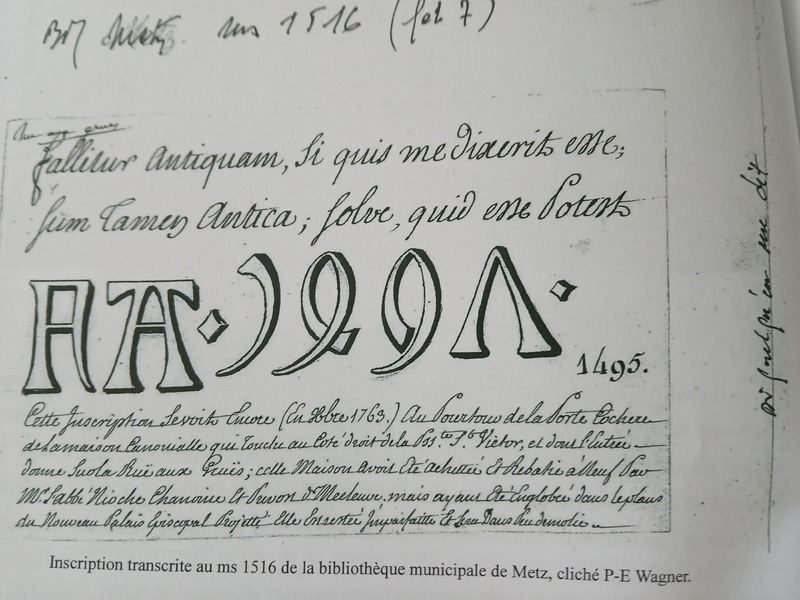 BM Metz ms 1516 (fol 7)
Rue aux grues
fallitur Antiquam, Si quis me dixerit esse;
sum Tamen Antica; solve, quid esse Potest
1495.
Cette Inscription Se voit Encore (En Xbre 1763.) Au Pourtour de la Porte Cochere
de la maison Canonialle qui Touche au Coté droit de la St Victor, et dont l'Entrée
donne Sur la Rüe aux Gruës; celle Maison avoit Eté achettée Et Rebatie à Neuf Par
Mr l'abbé Nische Chanoine Et de mais ayant Eté Englobée dans le plans
du Nouveau Palais Episcopal Projetté Elle En restée Imparfaitte Et Sera Dans Peu demolie.
Inscription transcrite au ms 1516 de la bibliothèque municipale de Metz, cliché P-E Wagner.